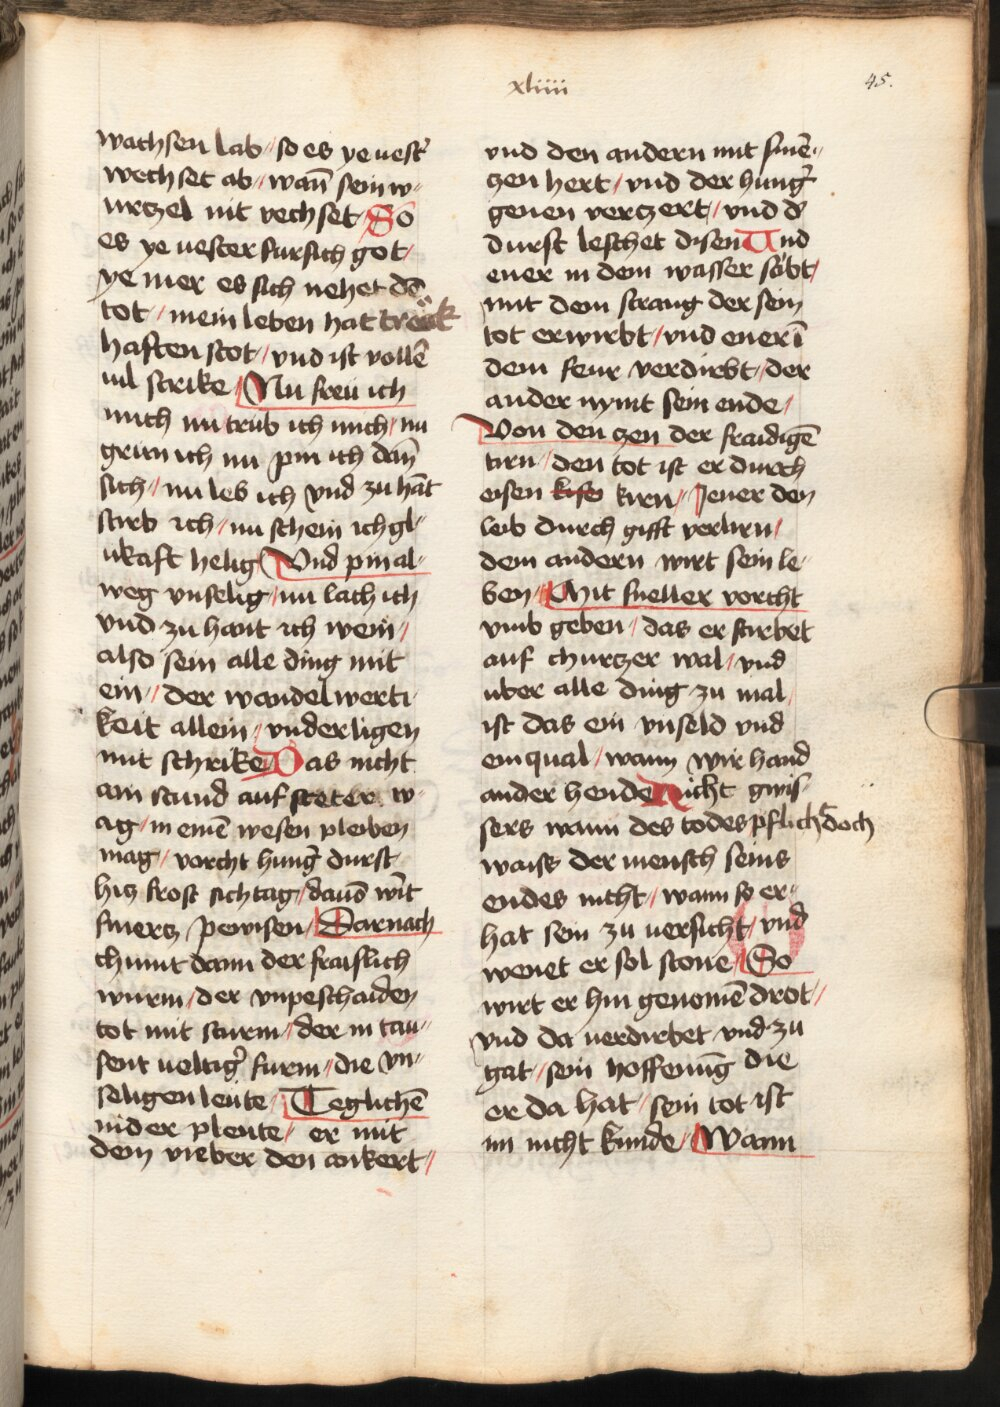 xliiii
45.
wachsen lab / so es ye uest᷑
wechset ab // wan̄ sein w⸗
urczel nit vechset / So
es ye uester fursich got /
ye mer es sich nehet dē
tot / mein leben hat
haften stot / vnd ist vollē
uil strike / Nu freu ich
mich nu trub ich mich / nu
grun ich nu pin ich dan̄
sich / nu leb ich vnd zu hāt
stirb ich / nu schein ich gl⸗
ukaft helig / Vnd pin al⸗
weg vnselig / nu lach ich
vnd zu hant ich wein /
also sein alle ding mit
ein // der wandelwerti
keit allein / vnderligen
mit schrike / Das nicht
am stund auf steter w⸗
ag / in einē wesen pleiben
mag / vorcht hung᷑ durst
hiz frost sichtag / dauō wirt
smercz pewisen / Darnach
chumt dann der fraislich
wurm / der vnpeschaiden
tot mit sturm / der in tau⸗
sent ueltig᷑ furm / die vn⸗
seligen leute / Teglichē
nider pleute / er mit
dem vieber den ankert //
vnd den andern mit smē⸗
czen hert / vnd der hung᷑
genen verczert / vnd d᷑
durst leschet disen Vnd
ener in dem wasser säbt /
mit dem strang der sein
tot erwirbt / vnd ener ī
dem feur verdirbt / der
ander nymt sein ende /
Von den zen der fraidigē
tirn / den tot ist er durch
eisen kirn // Jener den
leib durch gifft verlirn /
dem andern wirt sein le⸗
ben / Mit sneller vorcht
vmb geben / das er stirbet
auf churczer wal / vnd
uber alle ding zu mal
ist das ein vnseld vnd
ein qual / wann wir hand
ander hende Nicht gwis⸗
sers wann des todes pflicht doch
waiss der mensch seins
endes nicht / wann so er⸗
hat sein zu uersicht / vnd
wenet er sol stone / So
wirt er hin genomē drot //
vnd da uerdirbet vnd zu
gat / sein hoffenūg die
er da hat / sein tot ist
im nicht kunde / Wann